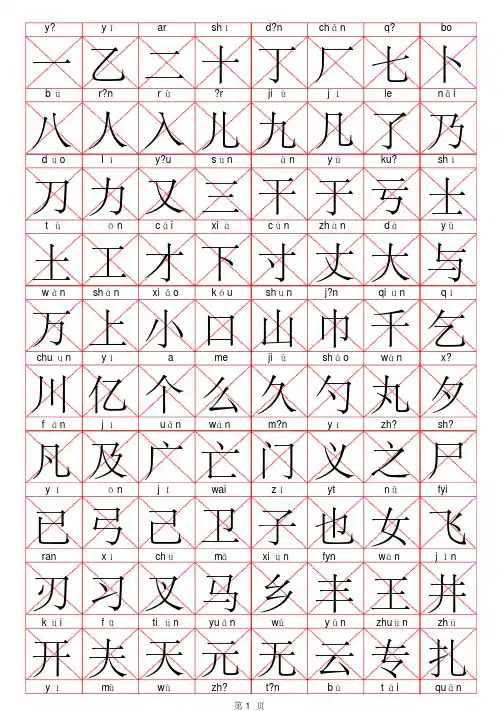 y? yī ar shí d?n chǎn q? bo
一 乙 二 十 丁 厂 七 卜
bü r?n rù ?r jiǔ jī le nǎi
八 人 入 儿 九 几 了 乃
düo lì y?u sün àn yú ku? shì
刀 力 又 三 干 于 亏 士
tǔ ōn cái xià cùn zhàn dà yǔ
土 工 才 下 寸 丈 大 与
wàn shàn xiǎo kǒu shün j?n qiün qǐ
万 上 小 口 山 巾 千 乞
chuün yì a me jiǔ sháo wán x?
川 亿 个 么 久 勺 丸 夕
fán jí uǎn wán m?n yì zh? sh?
凡 及 广 亡 门 义 之 尸
yǐ ōn jǐ wai zǐ yt nǚ fyi
已 弓 己 卫 子 也 女 飞
ran xí chü mǎ xiün fyn wán jǐn
刃 习 叉 马 乡 丰 王 井
küi fū tiün yuán wú yún zhuün zhü
开 夫 天 元 无 云 专 扎
yì mù wǔ zh? t?n bù tài quǎn
第 1 页